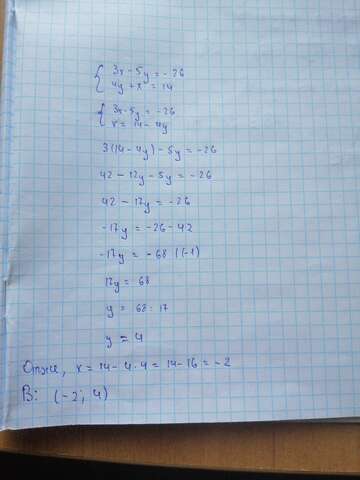 { 3x - 5y = -26
4y + x = 14
{ 3x - 5y = -26
x = 14 - 4y
3(14 - 4y) - 5y = -26
42 - 12y - 5y = -26
42 - 17y = -26
-17y = -26 - 42
-17y = -68 |(-1)
17y = 68
y = 68 : 17
y = 4
Отже, x = 14 - 4 · 4 = 14 - 16 = -2
В: (-2; 4)